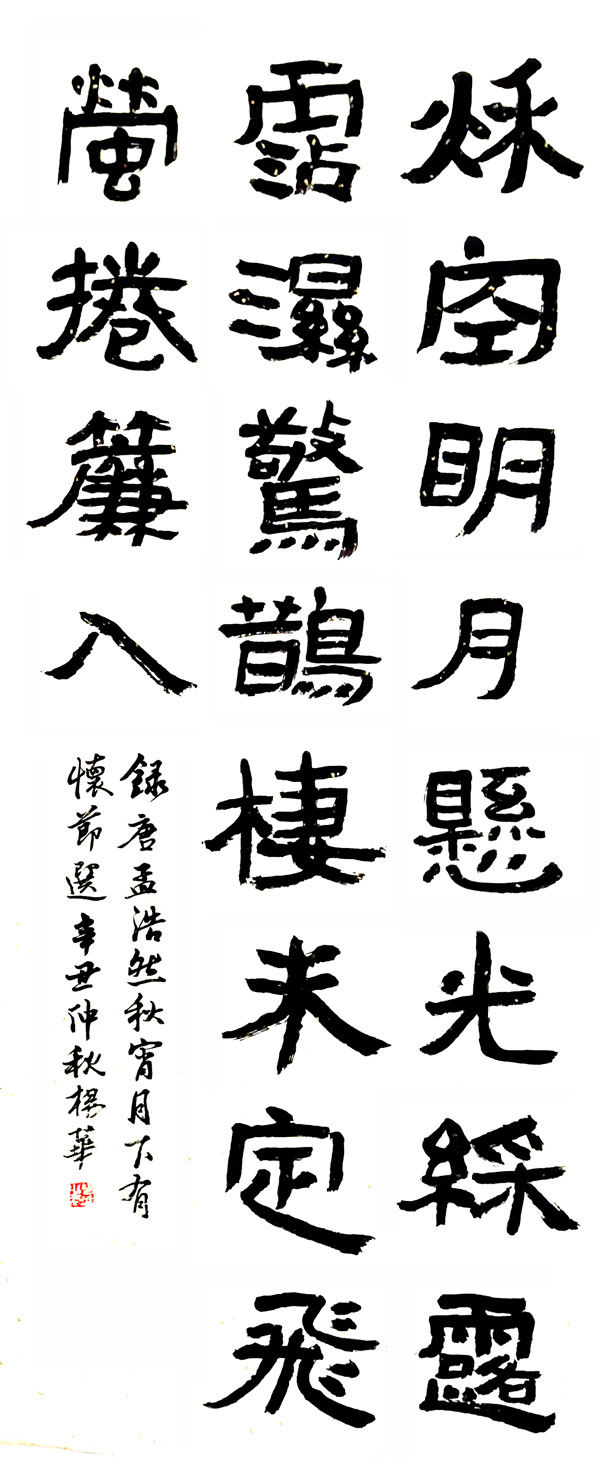 秌空明月懸光綵露
霑濕驚鵲棲未定飛
螢捲簾入
録唐孟浩然秋宵月下有
懷節選辛丑仲秋楊華